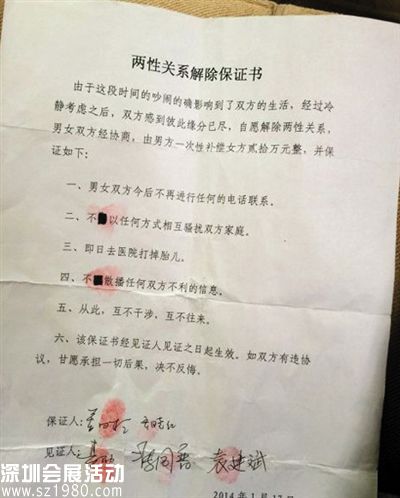 两性关系解除保证书
由于这段时间的吵闹的确影响到了双方的生活，经过冷
静考虑之后，双方感到彼此缘分已尽，自愿解除两性关系，
男女双方经协商，由男方一次性补偿女方贰拾万元整，并保
证如下：
一、男女双方今后不再进行任何的电话联系。
二、不以任何方式相互骚扰双方家庭。
三、即日去医院打掉胎儿。
四、不散播任何双方不利的信息。
五、从此，互不干涉，互不往来。
六、该保证书经见证人见证之日起生效。如双方有违协
议，甘愿承担一切后果，决不反悔。
保证人：
见证人： 袁建斌
2014年1月17日
深圳会展活动
www.sz1980.com